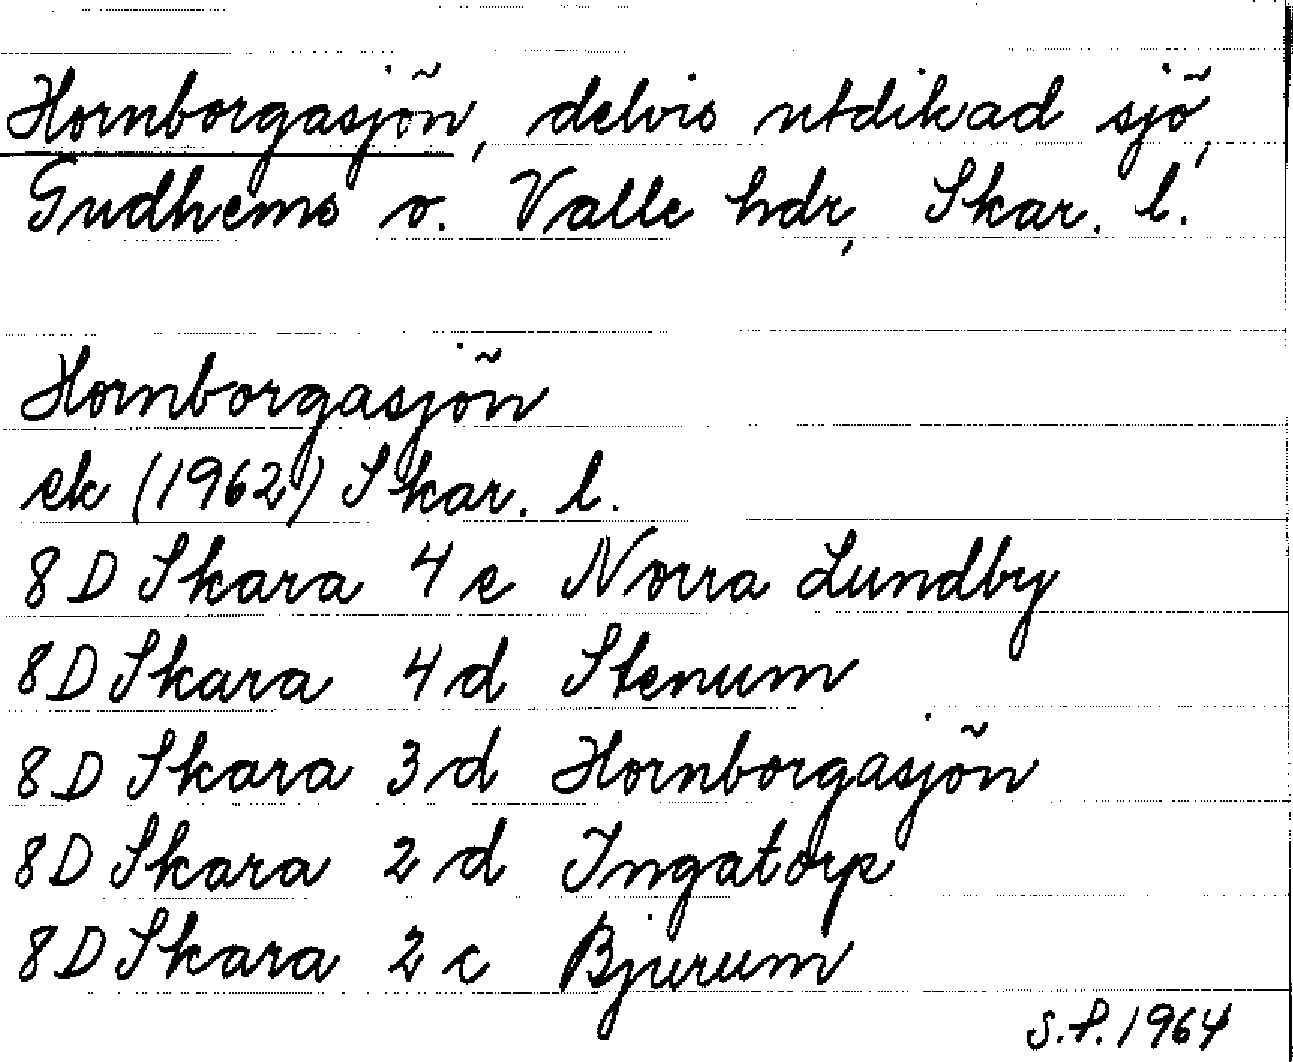 Hornborgasjön, delvis utdikad sjö,
Gudhems o. Valle hdr, Skar. l.
Hornborgasjön
ek (1962) Skar. l.
8D Skara 4c Norra Lundby
8D Skara 4d Stenum
8D Skara 3d Hornborgasjön
8D Skara 2d Ingatorp
8D Skara 2c Bjurum
S.P. 1964